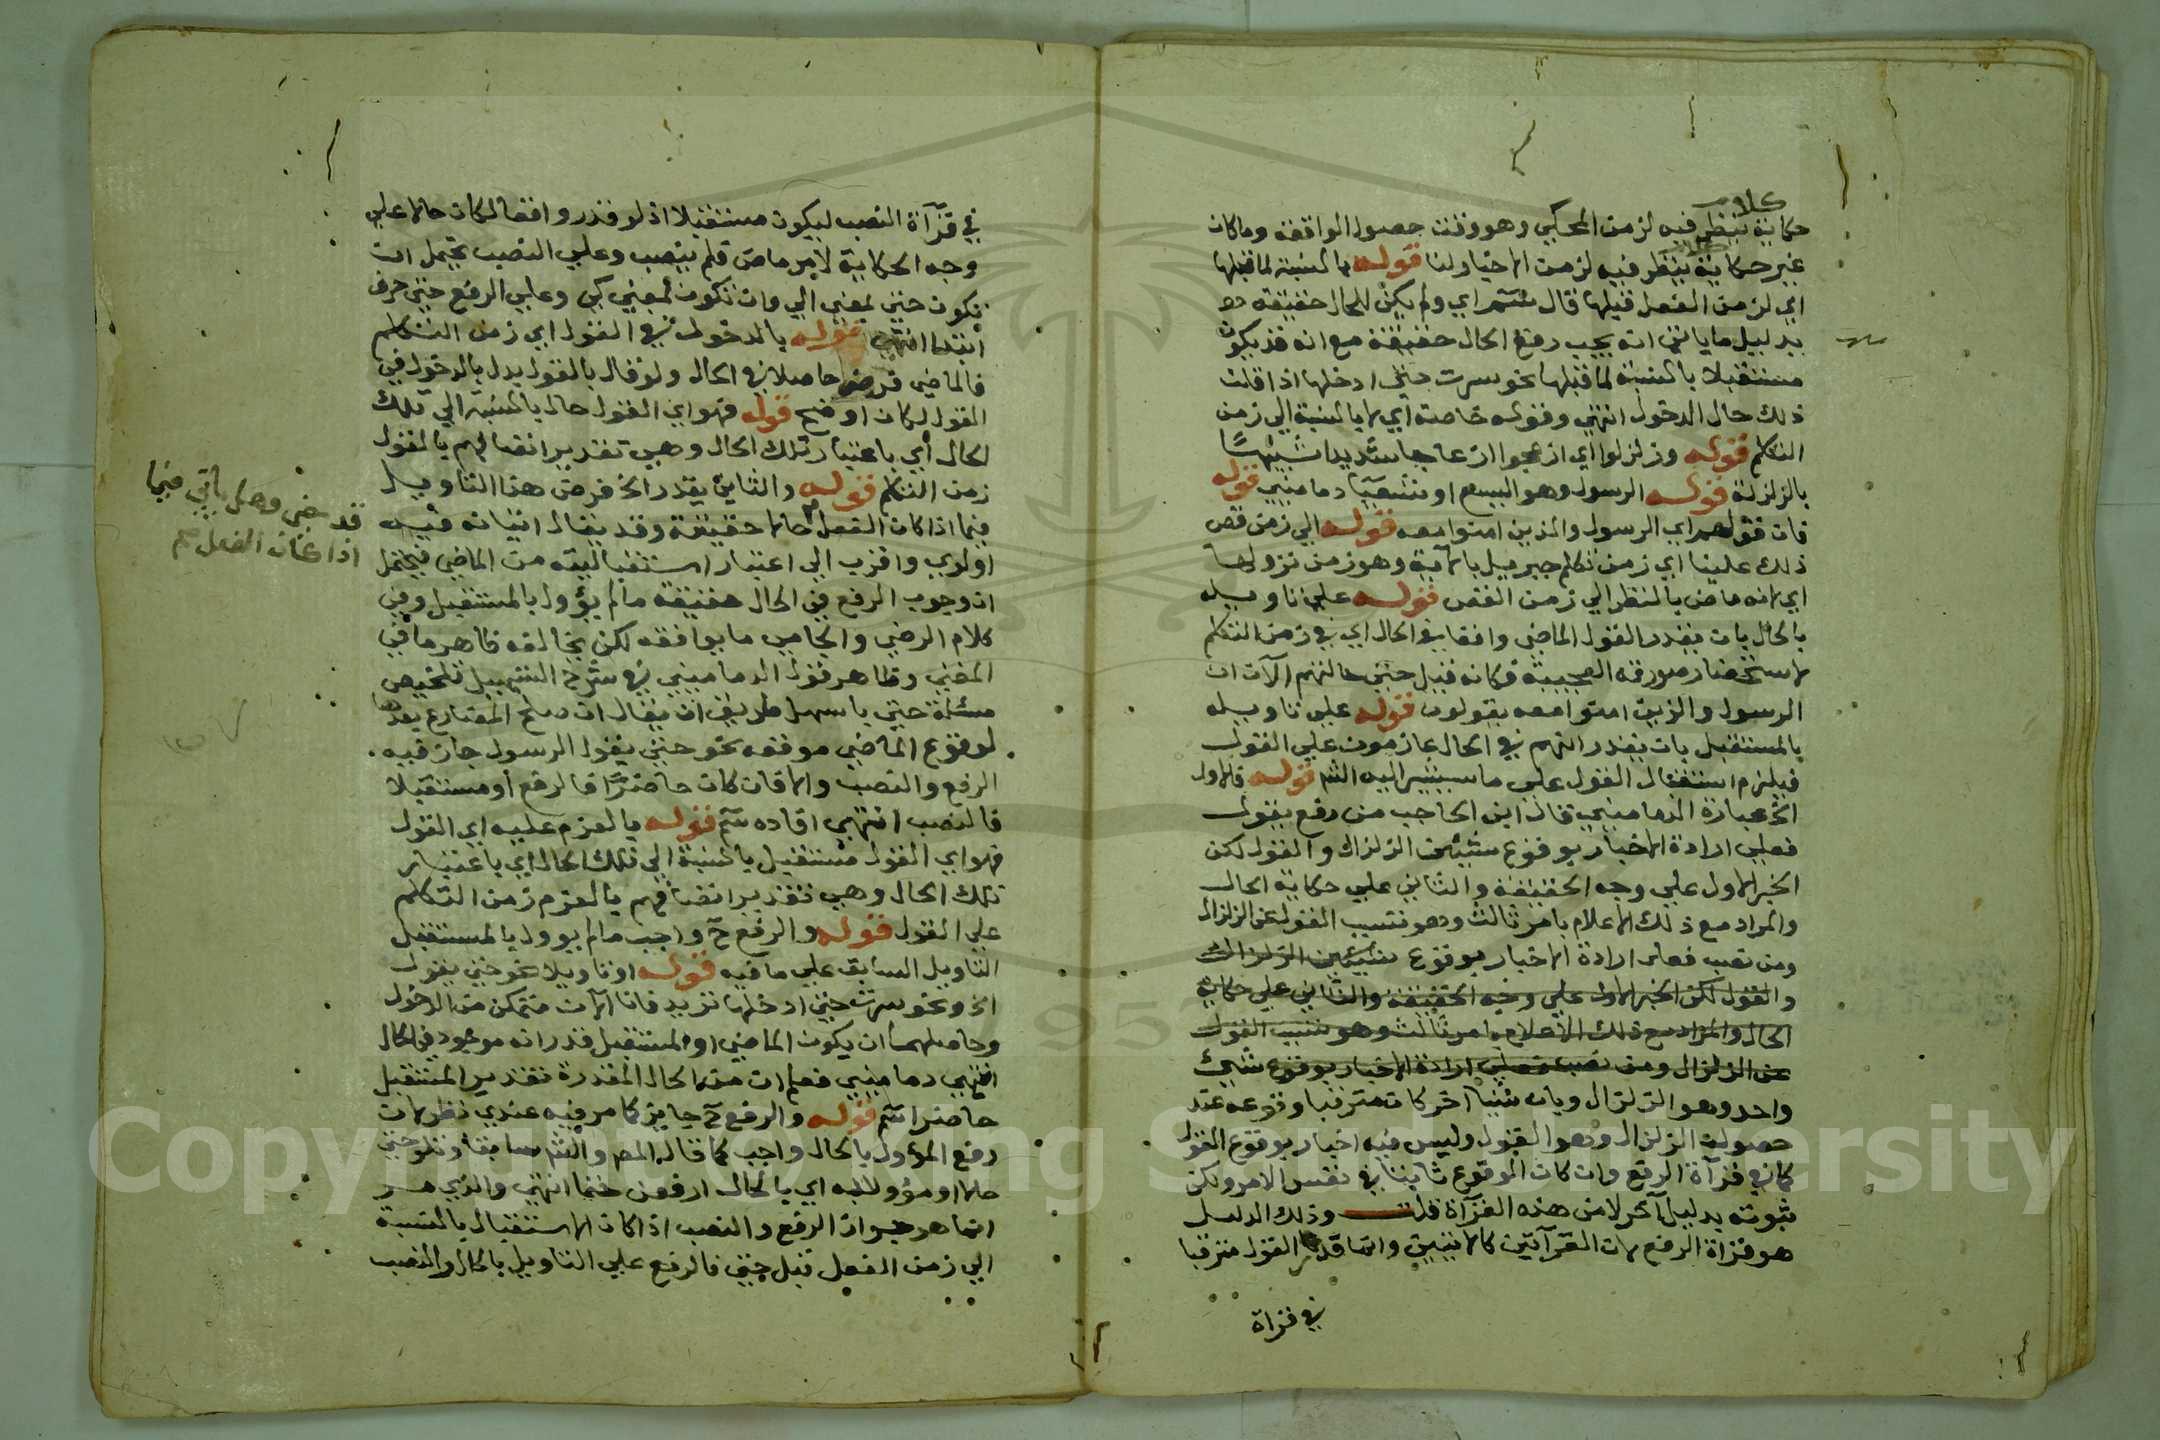 كلام
حكاية ينظر فيه لزمن المحكي وهو وقت حصول الواقعة وما كان
غير حكاية ينظر فيه لزمن الاخبار لنا قوله بالنسبة لما قبلها
اي لزمن الفعل قبلها قال سم اي ولم يكن للحال حقيقة
بدليل ما ياتي انه يجب رفع الحال حقيقة مع انه قد يكون
مستقبلا بالنسبة لما قبلها نحو سرت حتى ادخلها اذا قلت
ذلك حال الدخول انتهى وقوله خاصة اي لا بالنسبة الى زمن
التكلم قوله وزلزلوا اي ازعجوا ازعاجا شديدا شبيها
بالزلزلة قوله الرسول وهو اليسع او شعيا دماميني قوله
فان قولهم اي الرسول والذين امنوا معه قوله الي زمن قص
ذلك علينا اي زمن تكلم جبريل بالاية وهو زمن نزولها
اي لانه ماض بالنظر الي زمن القص قوله علي تاويله
بالحال بان يقدر القول الماضي واقعا في الحال اي في زمن التكلم
لاستحضار صورته العجيبة فكانه قيل حتى حالتهم الآن ان
الرسول والذين امنوا معه يقولون قوله علي تاويله
بالمستقبل بان يقدر انهم في الحال عازمون علي القول
فيلزم استقبال القول علي ما سيشير اليه الشم قوله فالاول
الخ عبارة الدماميني قال ابن الحاجب من رفع يقول
فعلي ارادة الاخبار بوقوع شيئين الزلزال والقول لكن
الخبر الاول علي وجه الحقيقة والثاني علي حكاية الحال
والمراد مع ذلك الاعلام بامر ثالث وهو تسبب القول عن الزلزال
ومن نصب فعلي ارادة الاخبار بوقوع شيئين الزلزال
والقول لكن الخبر الاول علي وجه الحقيقة والثاني علي حكاية
الحال والمراد مع ذلك الاعلام بامر ثالث وهو تسبب القول
عن الزلزال ومن نصب فعلي ارادة الاخبار بوقوع شيئ
واحد وهو الزلزال وبان شيئا آخر كان مترقبا وقوعه عند
حصول الزلزال وهو القول وليس فيه اخبار بوقوع القول
كما في قرآة الرفع وان كان الوقوع ثابتا في نفس الامر ولكن
ثبوته بدليل آخر لا من هذه القرآة قلت وذلك الدليل
هو قرآة الرفع لان القرآتين كالايتين وانما القول مترقبا
في قرآة
في قرآة النصب ليكون مستقبلا اذ لو قدر واقعا لكان حالا علي
وجه الحكاية لامر ماض فلم ينصب وعلي النصب يحتمل ان
تكون حتى بمعني الي وان تكون بمعني كي وعلي الرفع حتى حرف
ابتدا انتهى قوله بالدخول في القول اي زمن التكلم
فالماضي فرض حاصلا في الحال ولو قال بالقول بدل بالدخول في
القول لكان اوضح قوله فهو اي القول حال بالنسبة الي تلك
الحال أي باعتبار تلك الحال وهي تقدير اتصافهم بالقول
زمن التكلم قوله والثاني يقدر الخ فرض هذا التاويل
فيما اذا كان الفعل حالا حقيقة وقد يقال اتيانه فيه
اولوي واقرب الي اعتبار استقباليته من الماضي فيحتمل
ان وجوب الرفع في الحال حقيقة مالم يؤول بالمستقبل وفي
كلام الرضي والجامي ما يوافقه لكن يخالفه ظاهر ما في
المغني وظاهر قول الدماميني في شرح التسهيل تلخيص
مسئلة حتى باسهل طريق ان يقال ان صلح المضارع بعدها
لوقوع الماضي موقعه نحو حتى يقول الرسول جاز فيه
الرفع والنصب والا فان كان حاضرًا فالرفع أو مستقبلا
فالنصب انتهى افاده سم قوله بالعزم عليه اي القول
فهو اي القول مستقبل بالنسبة الي تلك الحال اي باعتبار
تلك الحال وهي تقدير اتصافهم بالعزم زمن التكلم
علي القول قوله والرفع ح واجب مالم يوول بالمستقبل
التاويل السابق علي ما فيه قوله او تاويلا نحو حتى يقول
الخ ونحو سرت حتى ادخلها تريد فانا الآن متمكن من الدخول
وحاصلهما أن يكون الماضي او المستقبل قدر انه موجود في الحال
انتهى دماميني فعلم ان من الحال المقدرة تقدير المستقبل
حاضرا سم قوله والرفع ح جايز كما مر فيه عندي نظر لان
رفع المؤول بالحال واجب كما قال المصـ والشم سابقا وتلو حتى
حالا او مؤولا به اي بالحال ارفعن حتما انتهى والذي مر
انما هو جواز الرفع والنصب اذا كان الاستقبال بالنسبة
الي زمن الفعل قبل حتى فالرفع علي التاويل بالحال والنصب
قد مضى وهل ياتي فيما
اذا كان الفعل صح